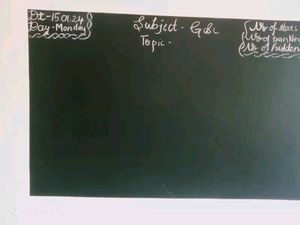 Dt-15.01.24
Day-Monday
Subject- G.Sc
Topic-
No of stars
No of
No of hidden